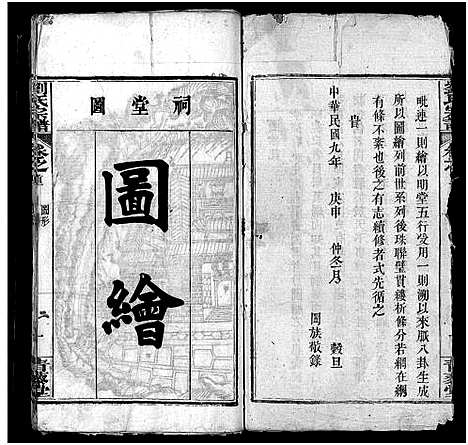 毗連一則繪以明堂五行爰用一則溯以來脈八卦生成
所以圖繪列前世系列後珠聯璧貫縷析條分若網在綱
有條不紊也後之有志續修者式先循之
旹
中華民國九年 庚申 仲冬月 穀旦
闔族敬錄
祠堂圖
圖繪
劉氏宗譜
卷之首
圖形
青藜堂